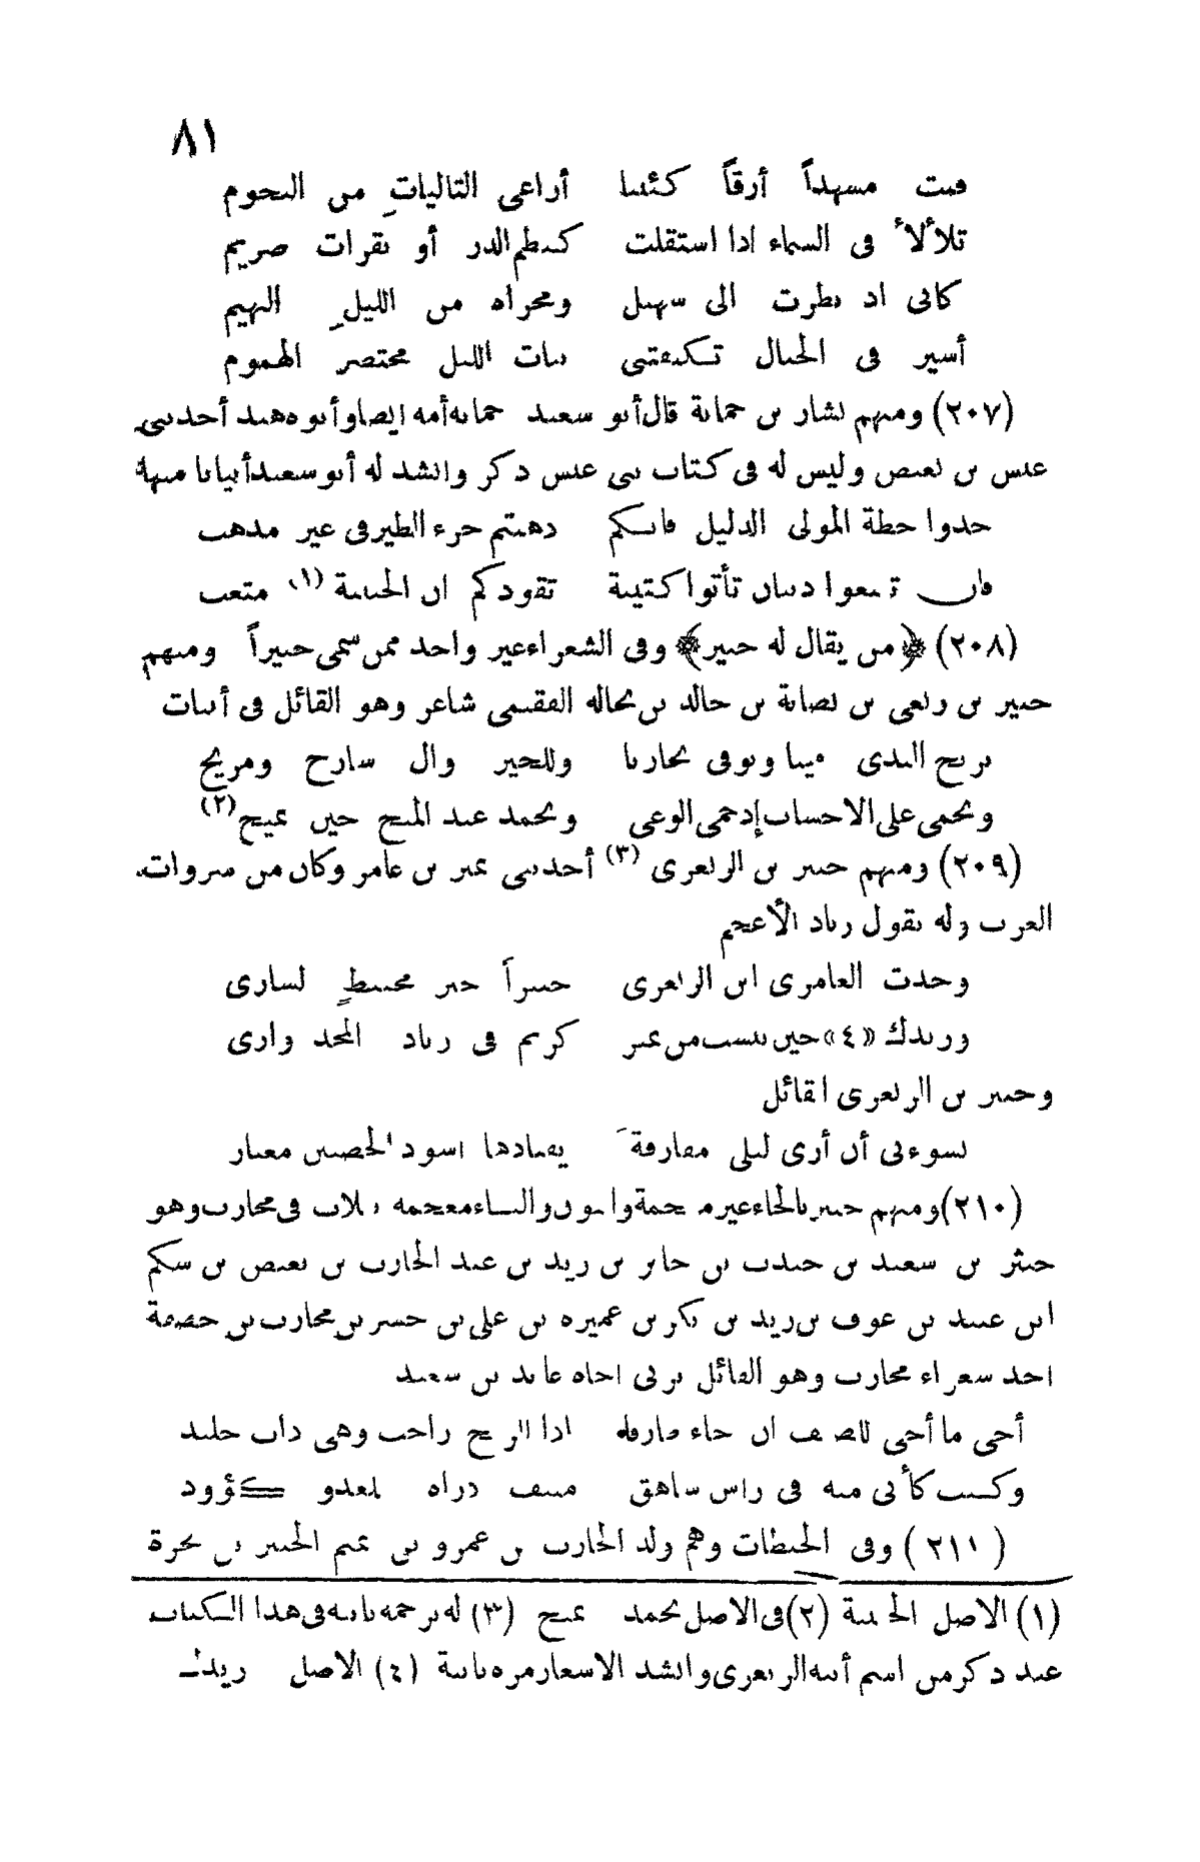 ٨١
فبت مسهداً أرقاً كئيبا أراعى التاليات من النجوم
تلألأ فى السماء اذا استقلت كنظم الدر أو بقرات صريم
كأنى اذ نظرت الى سهيل ومجراه من الليل البهيم
أسير فى الحبال تكنفتنى بنات الليل محتضر الهموم
(٢٠٧) ومنهم بشار بن حمانة قال أبو سعيد حمانه أمه ايضا وأبوه هند أحد بنى
عبس بن بغيض وليس له فى كتاب بنى عبس ذكر وانشد له أبو سعيد أبياتا منها
خذوا خطة المولى الذليل فانكم ذهبتم خرء الطير فى غير مذهب
فان تمنعوا ذبيان تأتوا كتيبة تقودكم ان الجنيبة (١) متعب
(٢٠٨) ﴿من يقال له جبير﴾ وفى الشعراء غير واحد ممن سمى جبيراً ومنهم
جبير بن ربعى بن نضلة بن خالد بن بحاله الفقسى شاعر وهو القائل فى أبيات
يريح الندى فينا ونوفى بجارنا وللخير وال سارح ومريح
ونحمى على الاحساب إذ حمى الوغى ونحمد عند المنح حين نميح (٢)
(٢٠٩) ومنهم الزبعرى (٣) أحد بنى نمير بن عامر وكان من سروات
العرب وله يقول زياد الأعجم
وجدت العامرى ابن الزبعرى خير محيط لسارى
وزندك «٤» حين ينسب من نمير كريم فى زناد المجد وارى
بن الزبعرى القائل
يسوءنى أن أرى ليلى مفارقة يقتادها اسود معيار
(٢١٠) ومنهم بالحاء غير معجمة والنون والباء معجمه فى محارب وهو
بن سعيد بن جندب بن جابر بن زيد بن عبد الحارث بن بغيض بن سكم
ابن عبيد بن عوف بن زيد بن بكر بن عميره بن على بن جسر بن محارب بن خصفة
احد شعراء محارب وهو القائل يرثى اخاه عايد بن سعيد
أخى ما أخى للضيف ان جاء طارقا اذا الريح راحت وهى ذات جليد
وكنت كأنى منه فى راس شاهق منيف ذراه للعدو كؤود
(٢١١) وفى الحبطات وهم ولد الحارث بن عمرو بن تميم
(١) الاصل (٢) فى الاصل بحمد نميح (٣) له ترجمه ثانيه فى هذا الكتاب
عند ذكر من اسم أبيه الزبعرى وانشد الاشعار مره ثانية (٤) الاصل زيدك